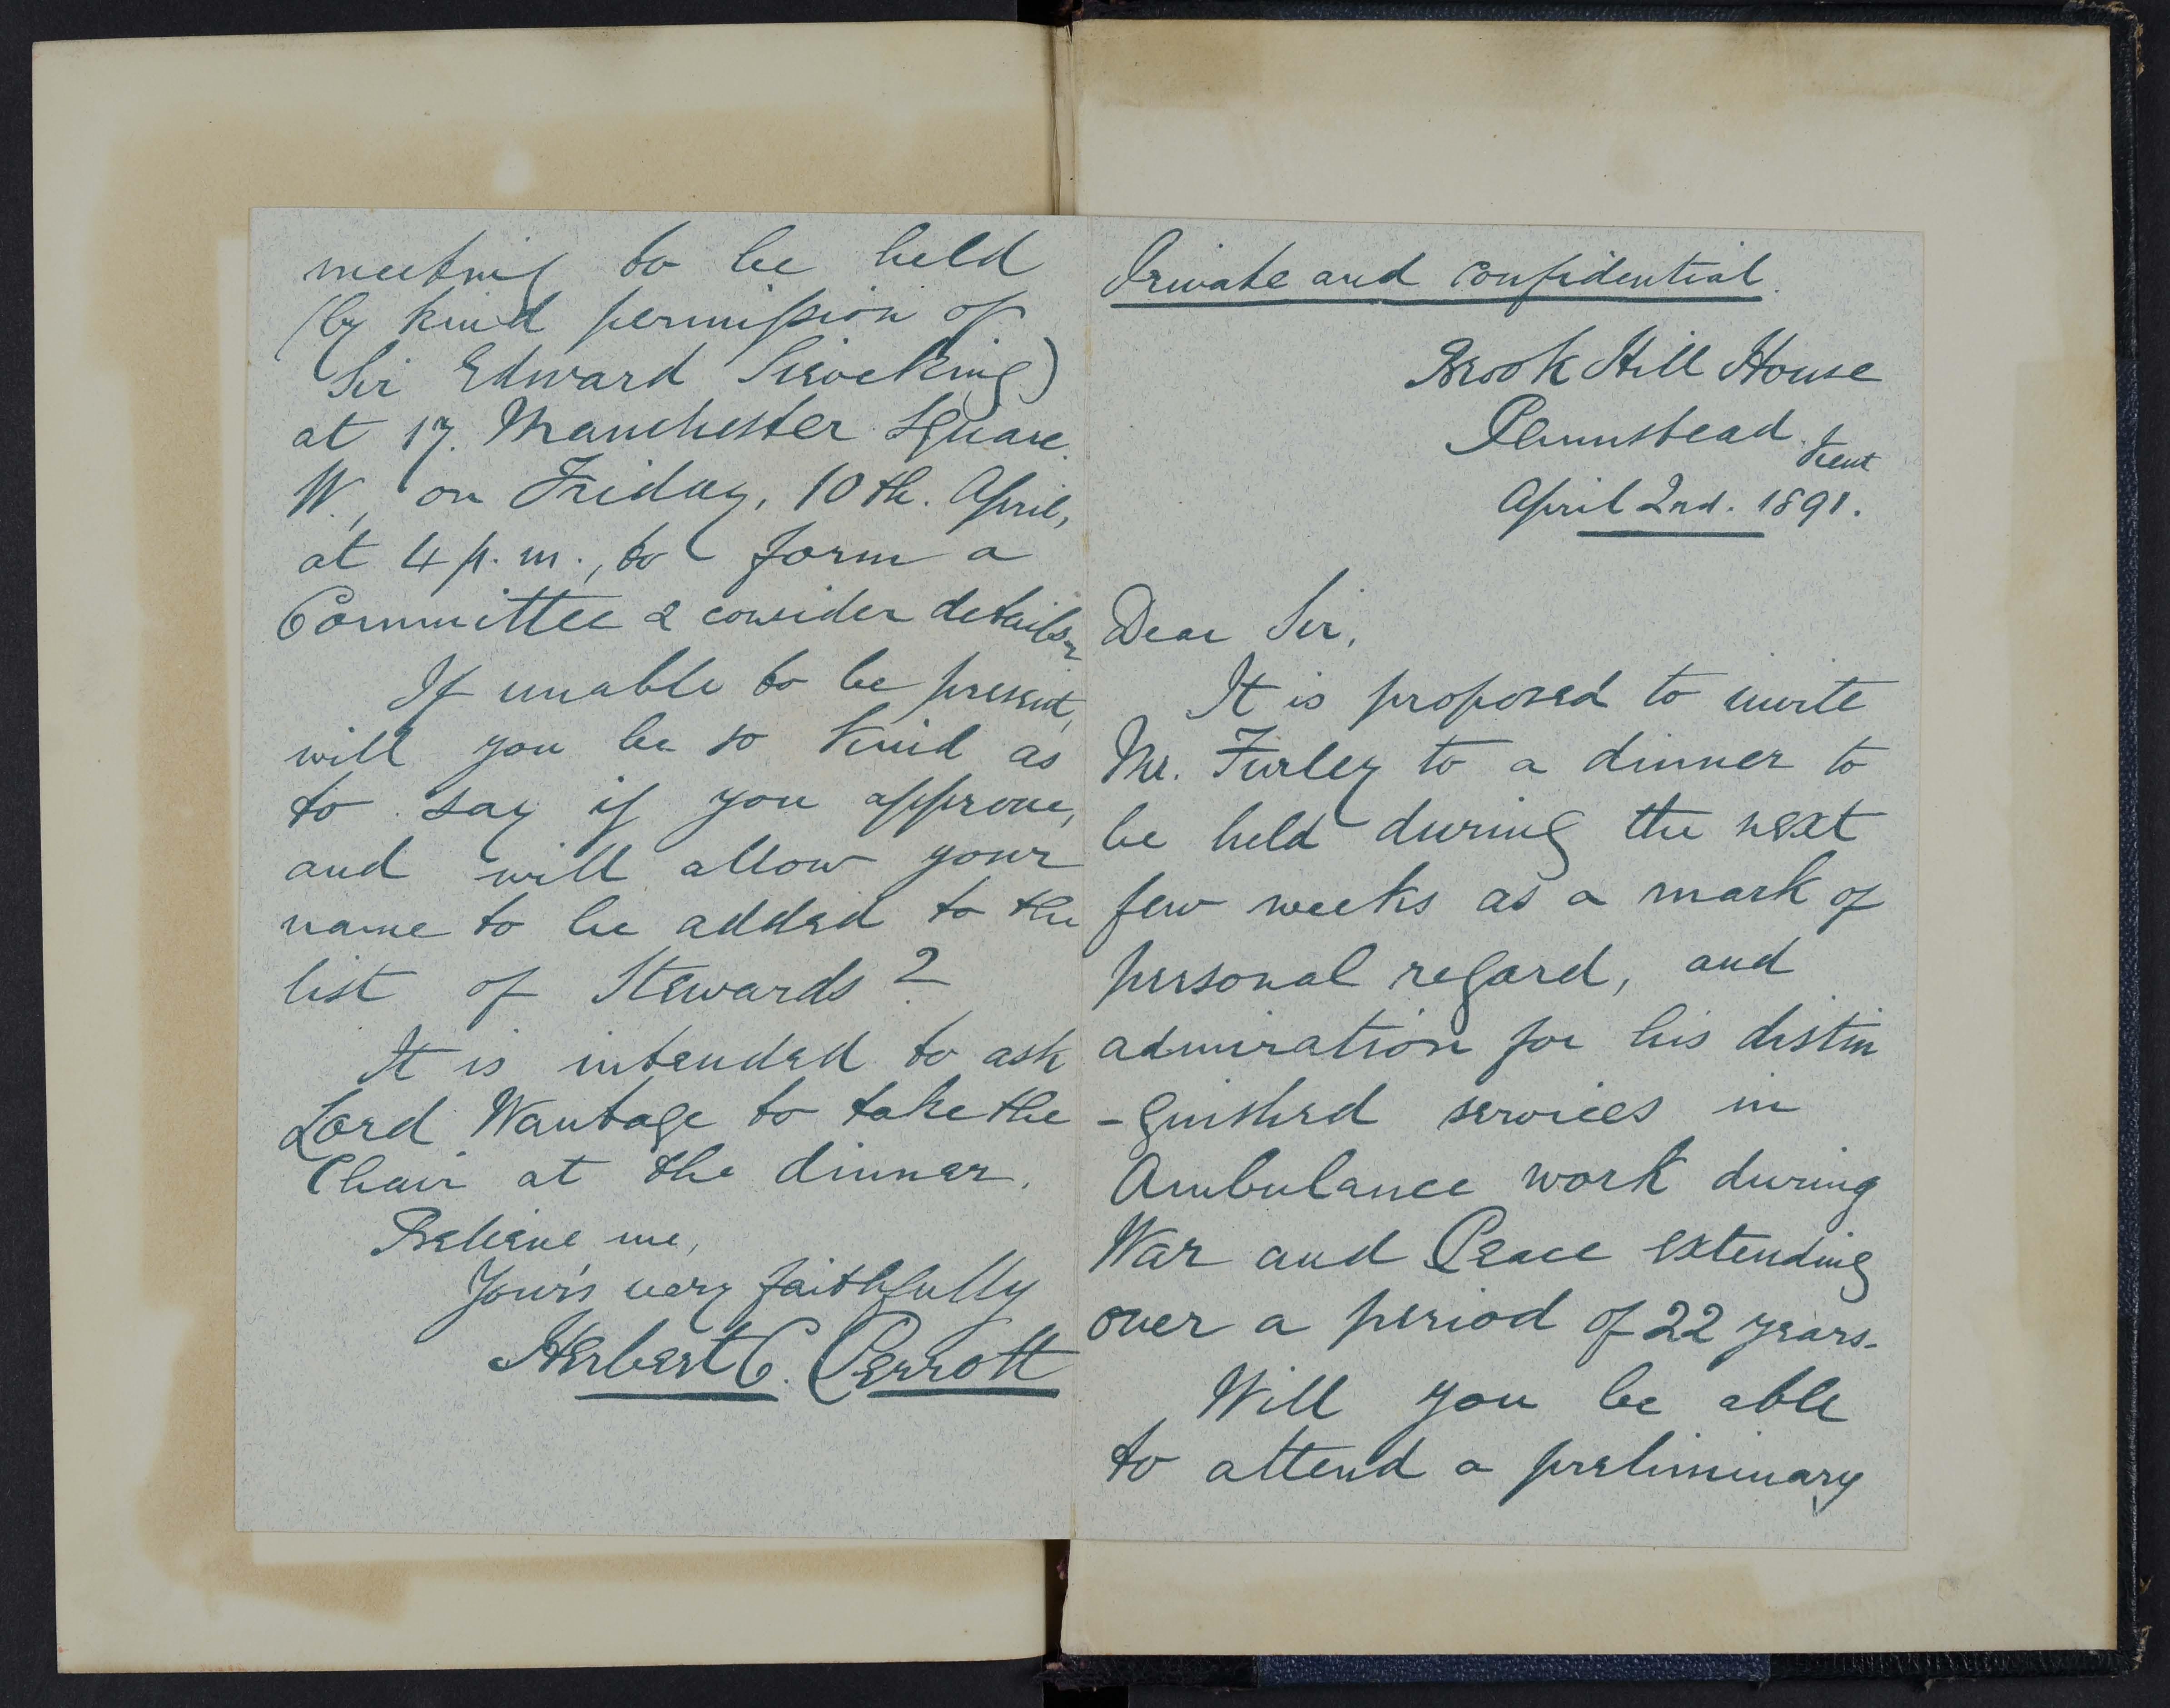 Private and confidential.
Brook Hill House
Plumstead.
Kent
April 2nd. 1891.
Dear Sir,
It is proposed to invite
Mr. Furley to a dinner to
be held during the next
few weeks as a mark of
personal regard, and
admiration for his distin
-guished services in
Ambulance work during
War and Peace extending
over a period of 22 years.
Will you be able
to attend a preliminary
meeting to be held
(by kind permission of
Sir Edward Sieveking)
at 17. Manchester Square.
W., on Friday, 10th. April,
at 4 p.m., to form a
Committee & consider details.
If unable to be present,
will you be so kind as
to say if you approve,
and will allow your
name to be added to the
list of Stewards?
It is intended to ask
Lord Wantage to take the
Chair at the dinner.
Believe me,
Your's very faithfully
Herbert C. Perrott